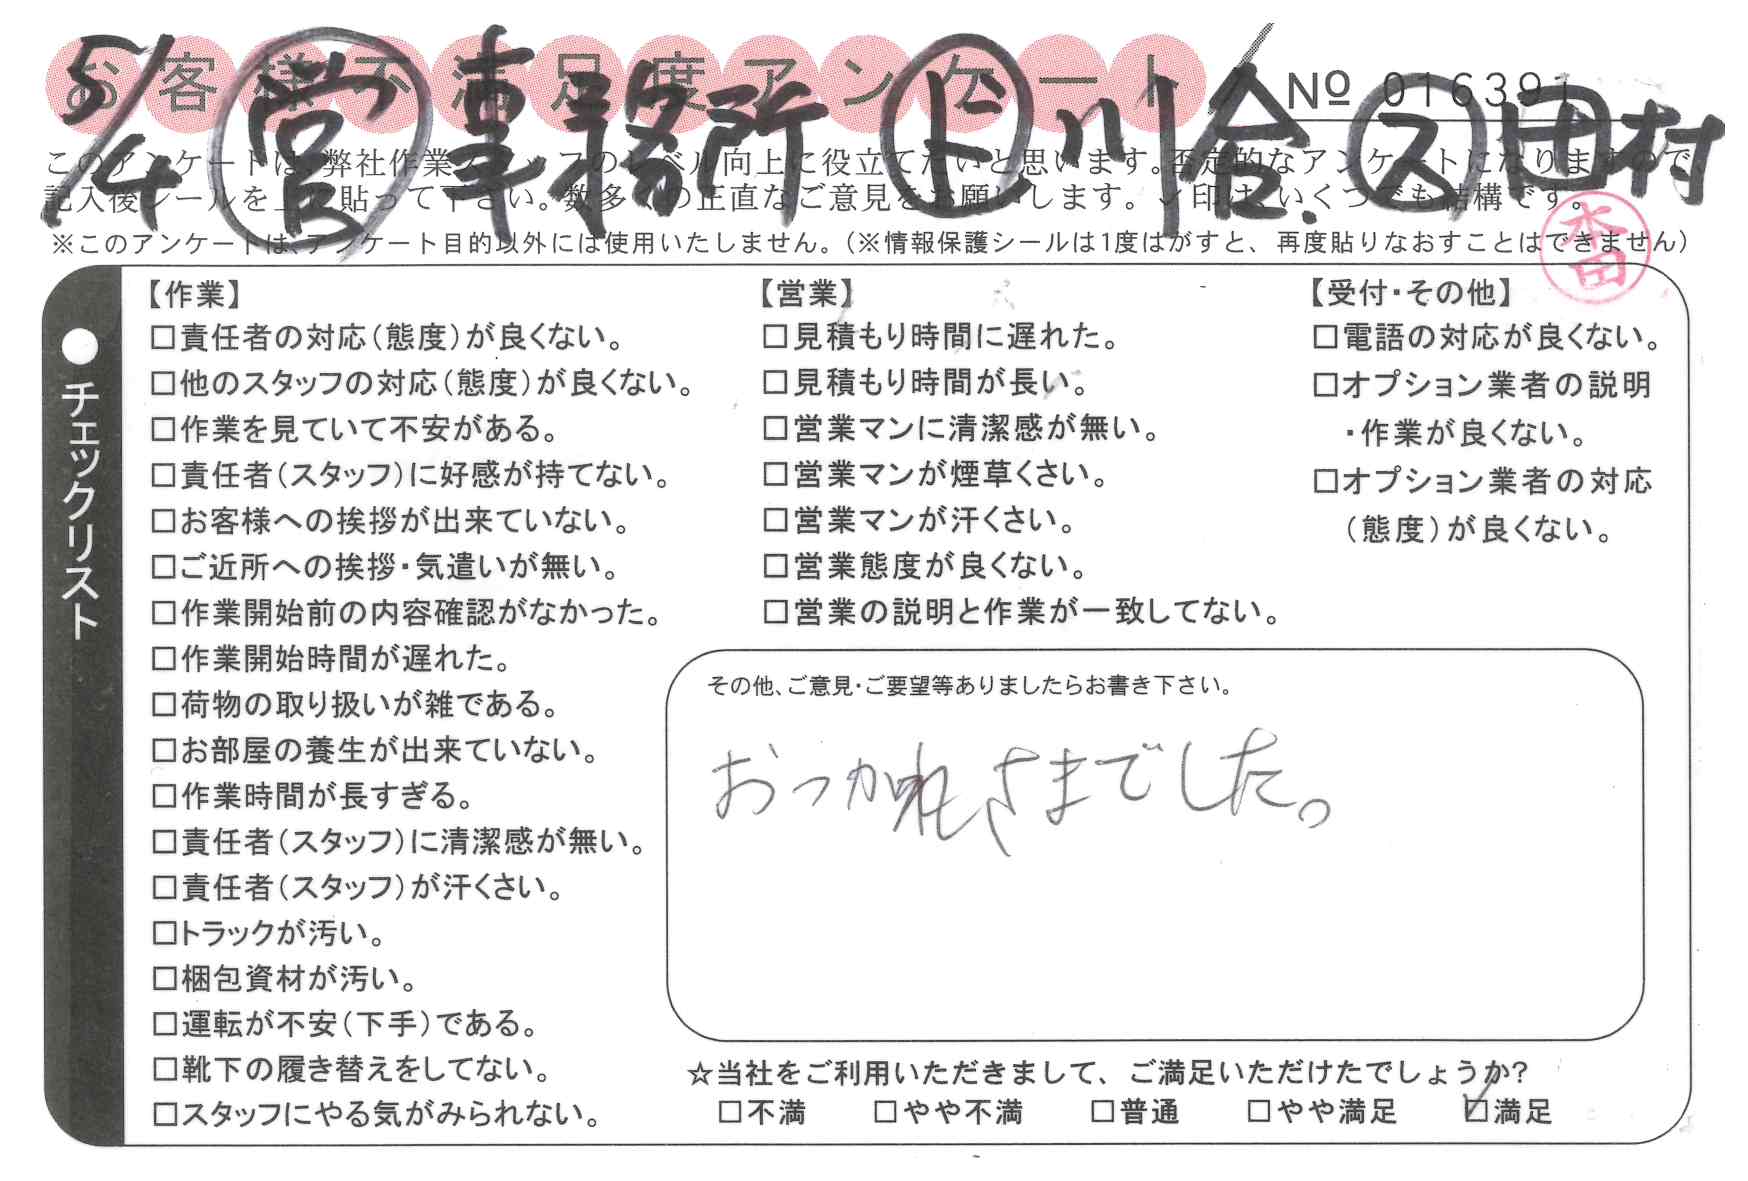 お客様不満足度アンケート
№ 016391
5/4 営 事務所 ト 川合. ス 田村
このアンケートは、弊社作業スタッフのレベル向上に役立てたいと思います。否定的なアンケートになりますので、
記入後シールを上に貼って下さい。数多くの正直なご意見をお願いします。✓印は、いくつでも結構です。
※このアンケートは、アンケート目的以外には使用いたしません。（※情報保護シールは1度はがすと、再度貼りなおすことはできません）
●チェックリスト
【作業】
□責任者の対応（態度）が良くない。
□他のスタッフの対応（態度）が良くない。
□作業を見ていて不安がある。
□責任者（スタッフ）に好感が持てない。
□お客様への挨拶が出来ていない。
□ご近所への挨拶・気遣いが無い。
□作業開始前の内容確認がなかった。
□作業開始時間が遅れた。
□荷物の取り扱いが雑である。
□お部屋の養生が出来ていない。
□作業時間が長すぎる。
□責任者（スタッフ）に清潔感が無い。
□責任者（スタッフ）が汗くさい。
□トラックが汚い。
□梱包資材が汚い。
□運転が不安（下手）である。
□靴下の履き替えをしてない。
□スタッフにやる気がみられない。
【営業】
□見積もり時間に遅れた。
□見積もり時間が長い。
□営業マンに清潔感が無い。
□営業マンが煙草くさい。
□営業マンが汗くさい。
□営業態度が良くない。
□営業の説明と作業が一致してない。
【受付・その他】
□電語の対応が良くない。
□オプション業者の説明
・作業が良くない。
□オプション業者の対応
（態度）が良くない。
その他、ご意見・ご要望等ありましたらお書き下さい。
おつかれさまでした。
☆当社をご利用いただきまして、ご満足いただけたでしょうか?
□不満 □やや不満 □普通 □やや満足 ☑満足